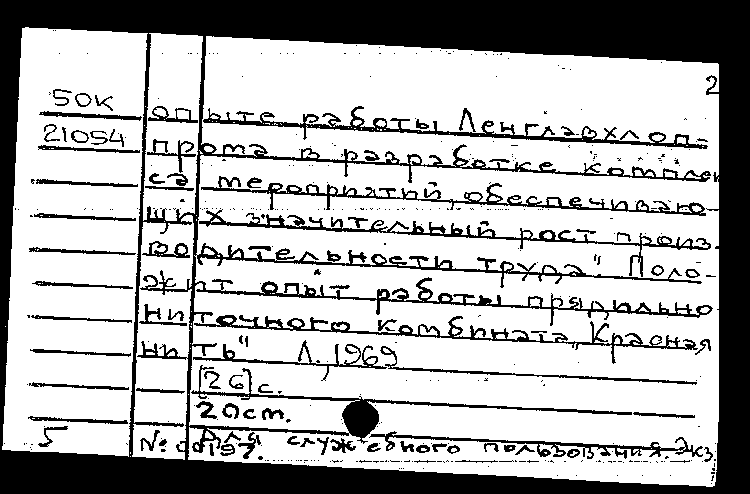 2
50К опыте работы Ленглавхлоп-
21054 прома в разработке комплек
са мероприятий, обеспечиваю-
щих значительный рост произ-
водительности труда". Поло-
жит опыт работы прядильно
ниточного комбината „Красная
нить" Л., 1969
[26] с.
20 см.
Для служебного пользования. Экз
5 № 00197.